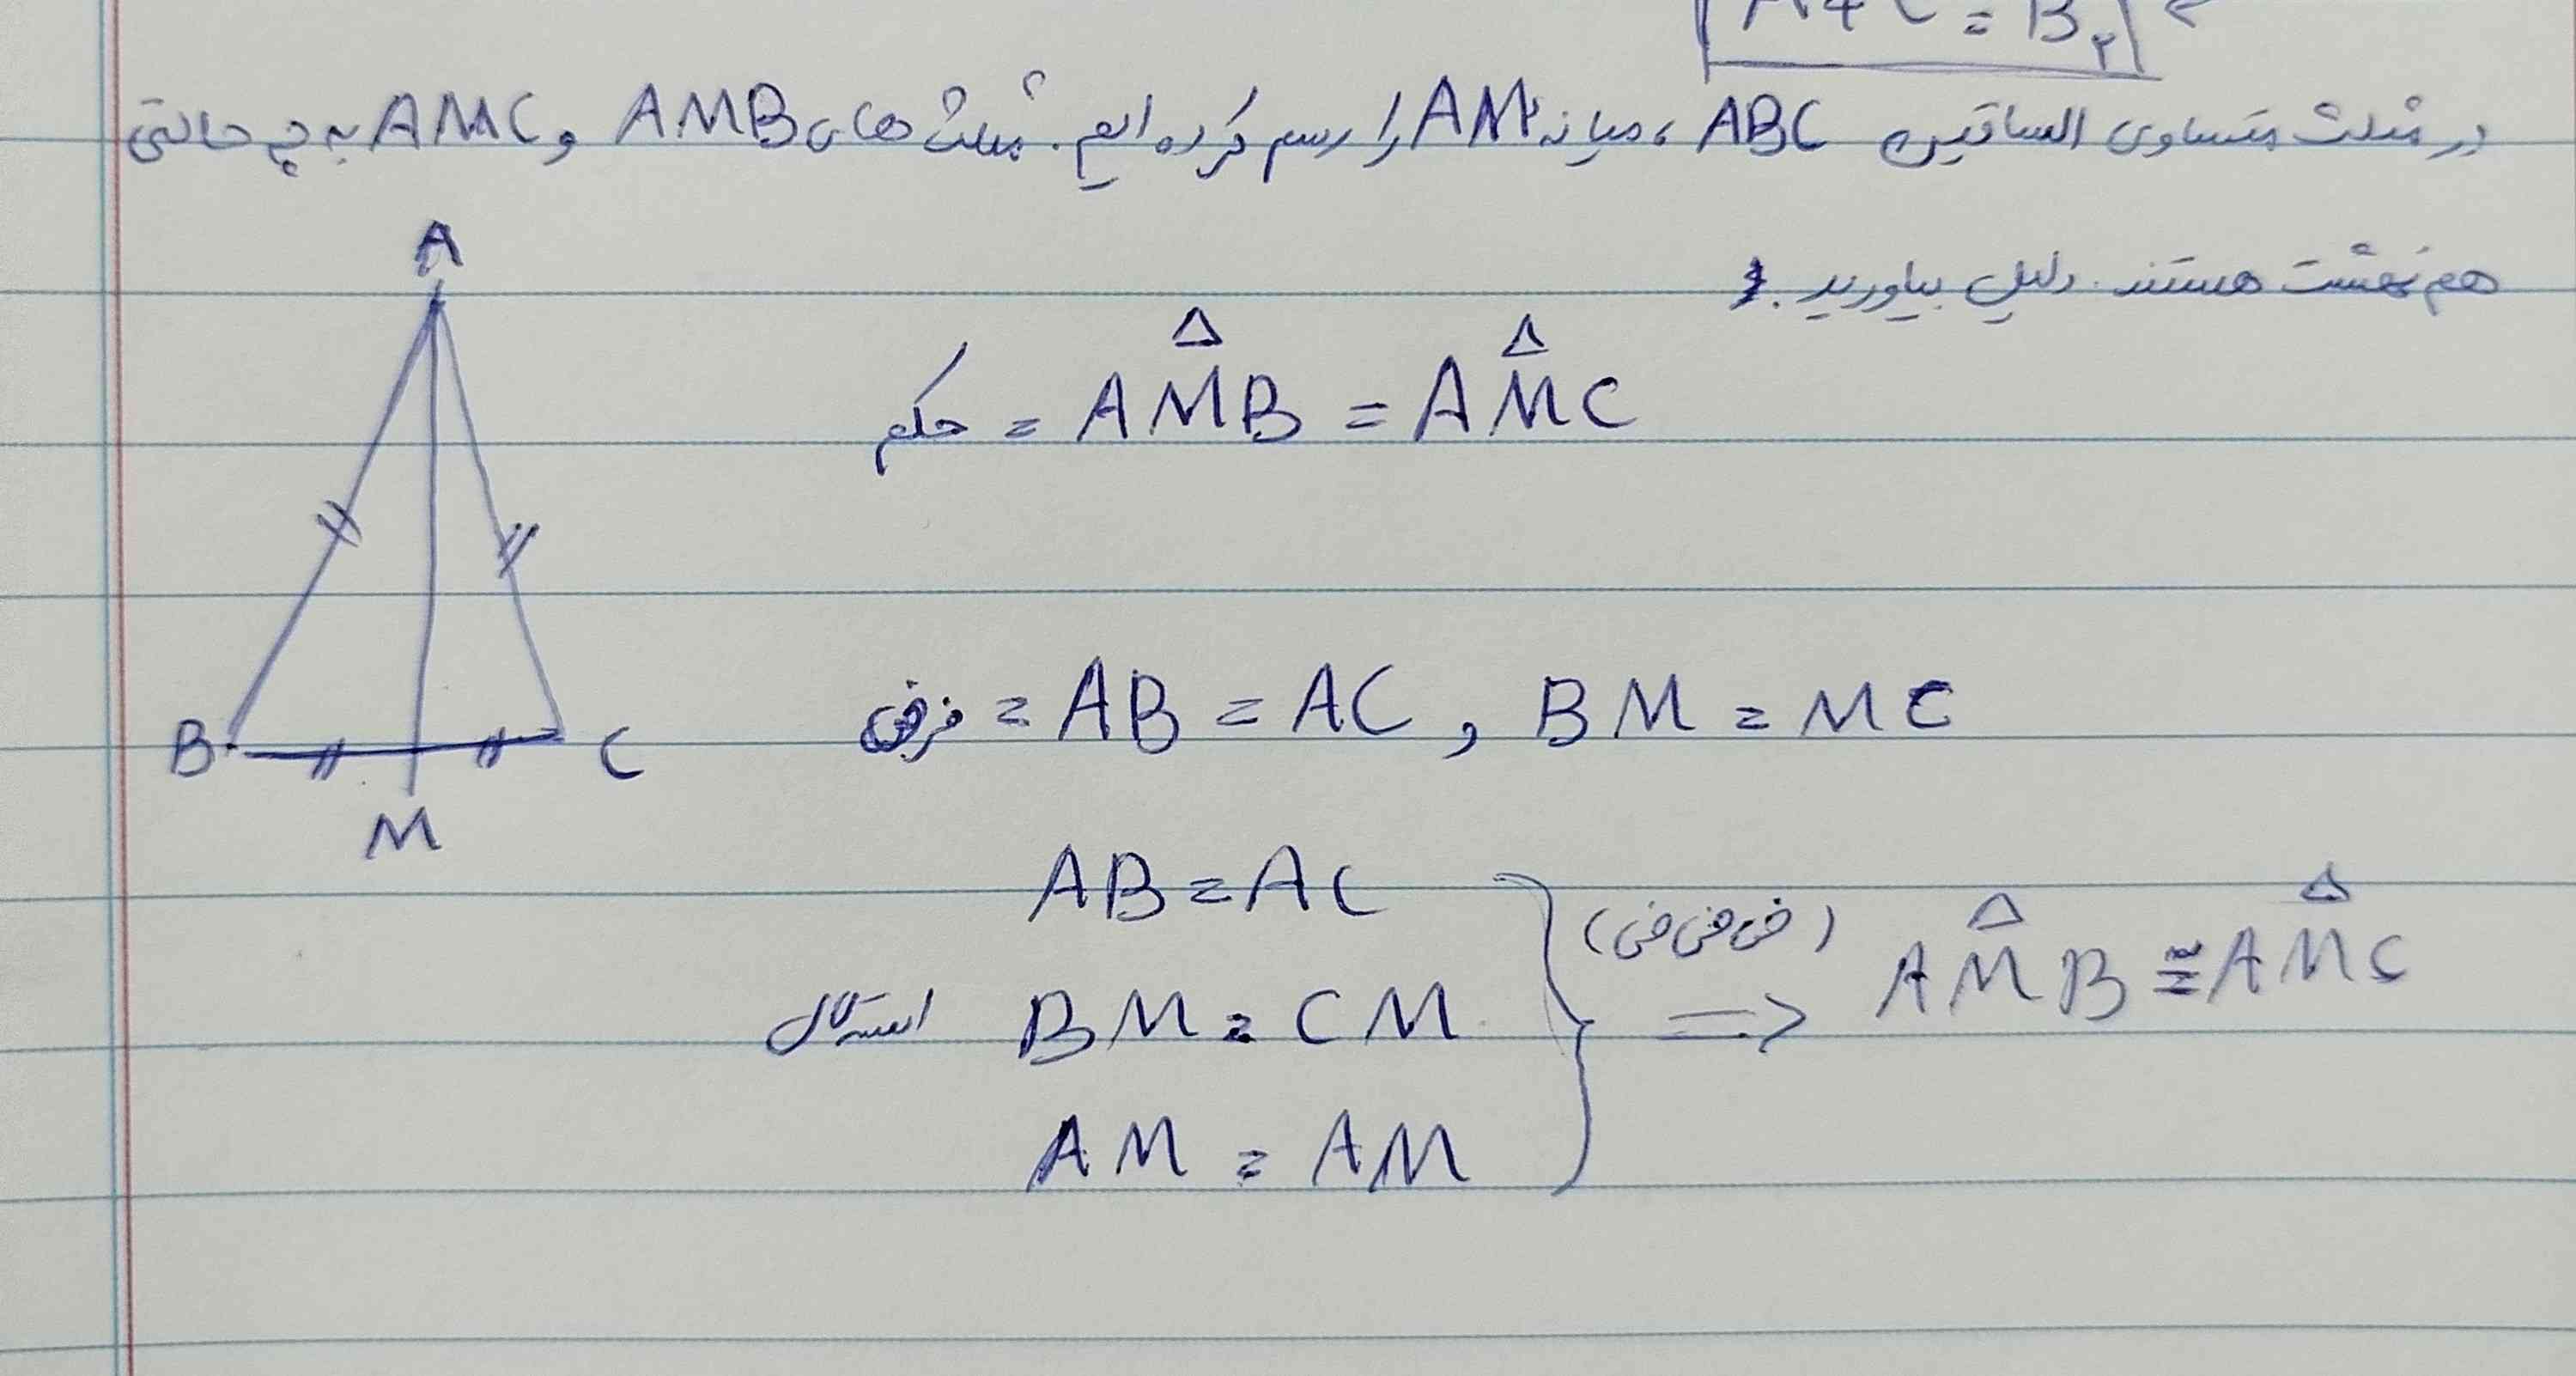 A + C = B۲
در مثلث متساوی الساقین ABC، میانه AM را رسم کرده ایم. مثلث های AMB و AMC به چه حالتی
هم نهشت هستند. دلیل بیاورید.
A
حکم = AMB = AMC
فرض = AB = AC , BM = MC
B C
M
AB = AC
(ض ض ض)
استدلال BM = CM => AMB ≅ AMC
AM = AM